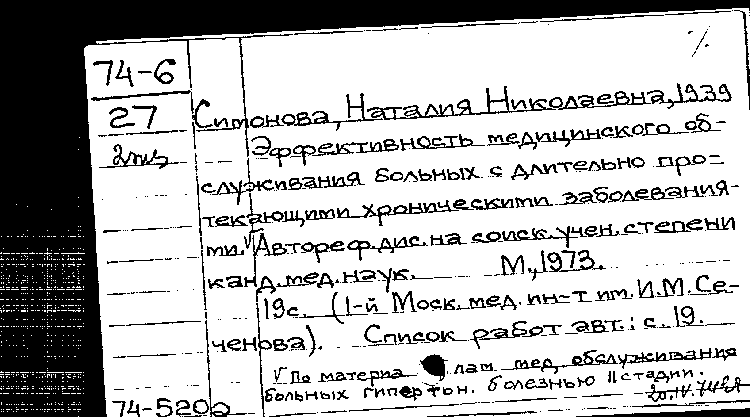 74-6
27
2 экз
Симонова, Наталия Николаевна, 1939
Эффективность медицинского об-
служивания больных с длительно про-
текающими хроническими заболевания-
ми. V Автореф. дис. на соиск. учен. степени
канд. мед. наук. М., 1973.
19с. (1-й Моск. мед. ин-т им. И.М. Се-
ченова). Список работ авт.: с. 19.
V По материа лам мед. обслуживания
больных гипертон. болезнью II стадии.
74-520